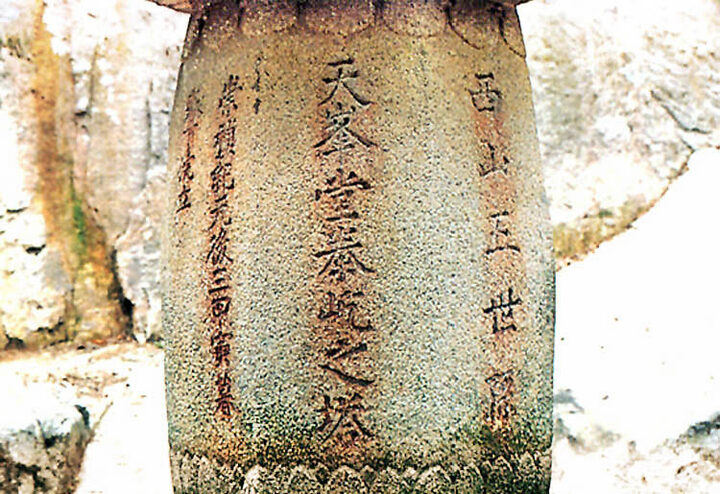 西山五世孫
天峯堂泰屹之塔
崇禎紀元後三回寅
立